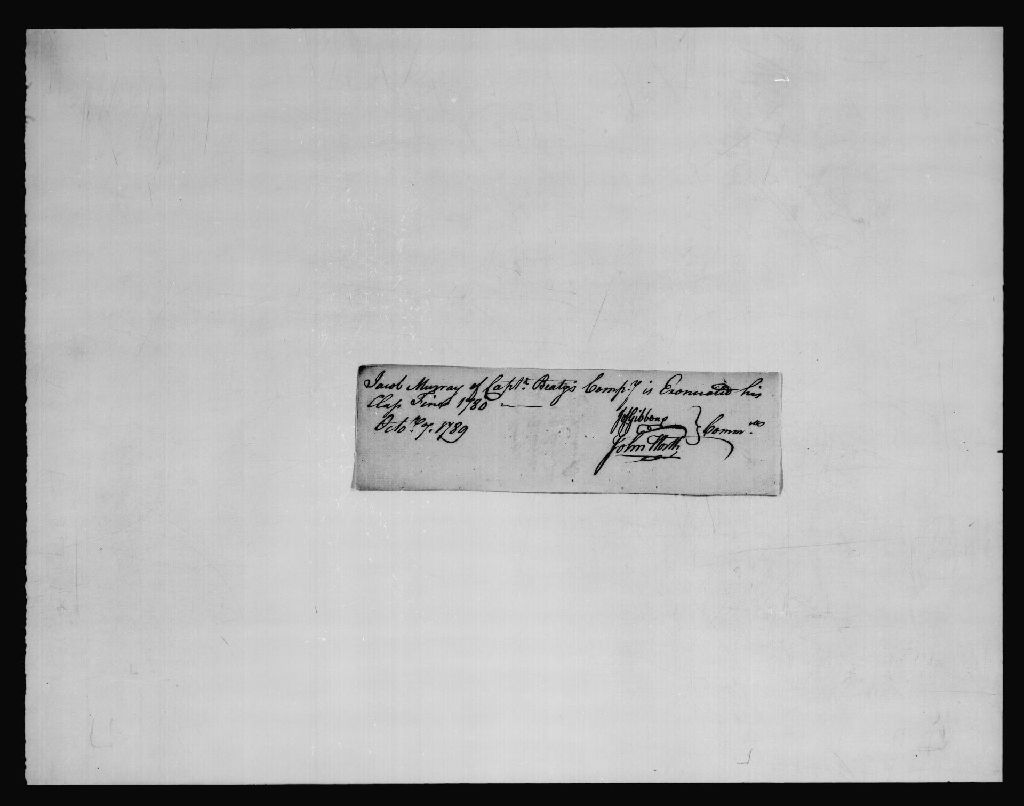 Jacob Murray of Capt. Beaty's Comp.y is Exonerated his
Class Fines 1780 —
Octo.r 7. 1789
Js Gibbons
John North } Comm.rs